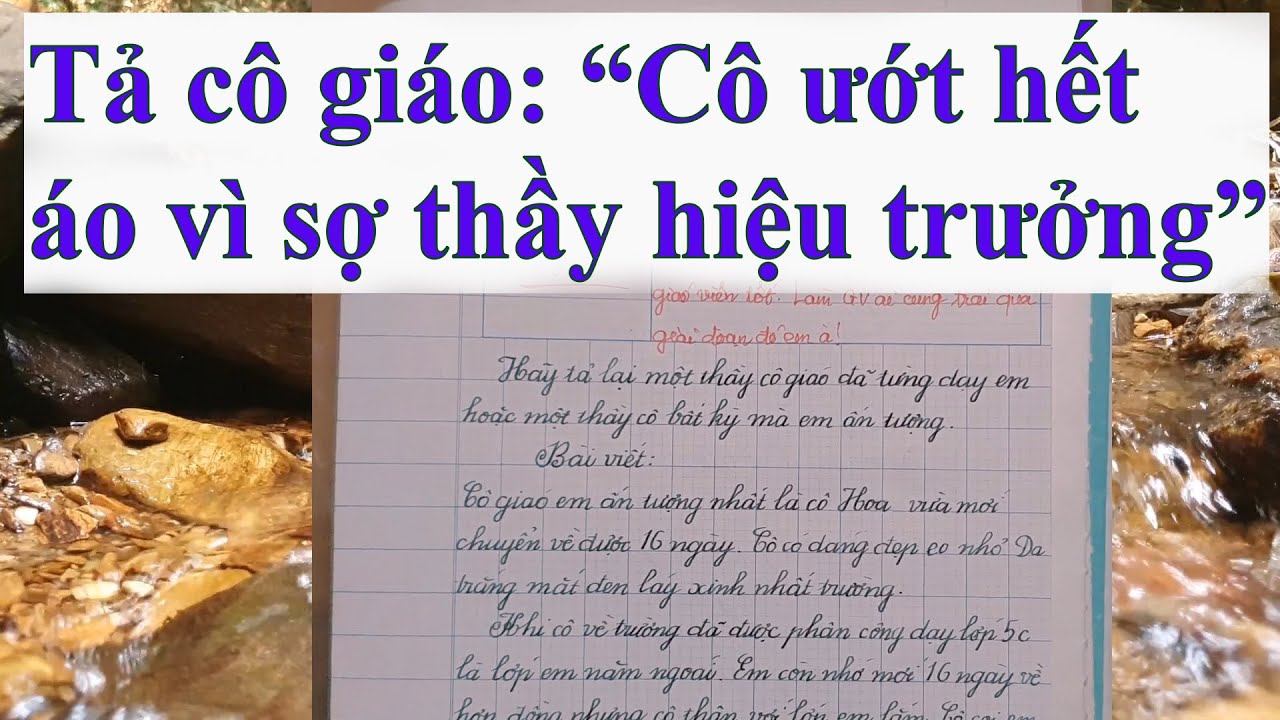 Tả cô giáo: “Cô ướt hết
áo vì sợ thầy hiệu trưởng”
giáo viên tốt. Làm GV ai cũng trải qua
giai đoạn đó em à!
Hãy tả lại một thầy cô giáo đã từng dạy em
hoặc một thầy cô bất kỳ mà em ấn tượng.
Bài viết:
Cô giáo em ấn tượng nhất là cô Hoa vừa mới
chuyển về được 16 ngày. Cô có dáng đẹp eo nhỏ. Da
trắng mắt đen láy xinh nhất trường.
Khi cô về trường đã được phân công dạy lớp 5c
là lớp em năm ngoái. Em còn nhớ mới 16 ngày về
hợp đồng nhưng cô thân với lớp em lắm. Cô coi em